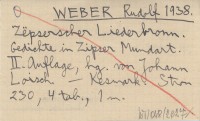 O WEBER Rudolf 1938.
Zipserscher Liederbronn.
Gedichte in Zipser Mundart.
II. Auflage, hg. von Johann
Loisch — Kesmark: Stran
230, 4 tab., 1 m.